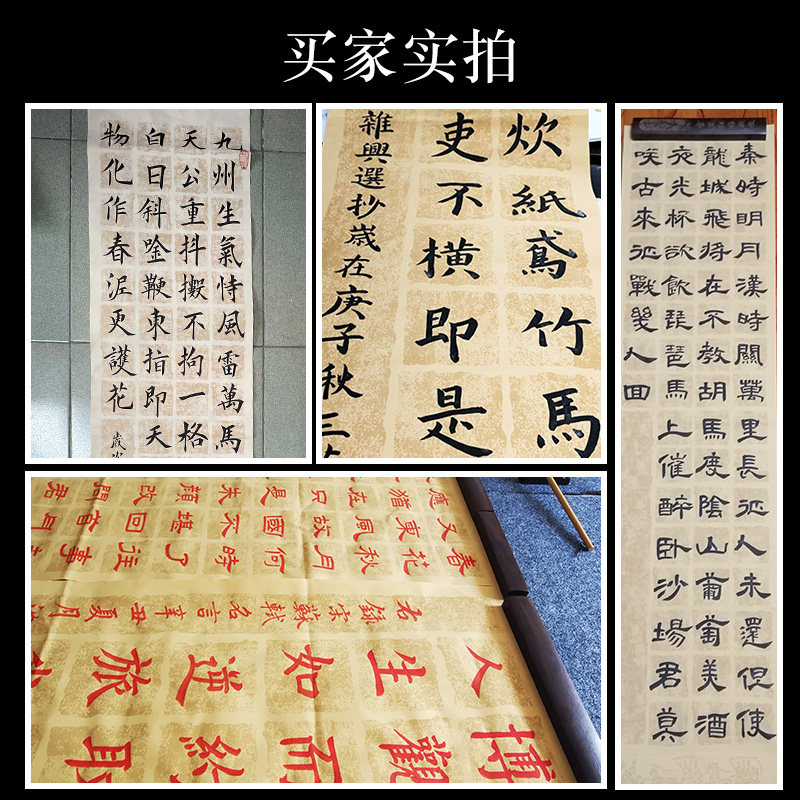 买家实拍
九州生氣恃風雷萬馬
天公重抖擻不拘一格
白日斜唫鞭東指即天
物化作春泥更護花
炊紙鳶竹馬
吏不横即是
雜興選抄歲在庚子秋三
秦時明月漢時關萬里長征人未還但使
龍城飛将在不教胡馬度陰山葡萄美酒
夜光杯欲飲琵琶馬上催醉卧沙場君莫
咲古來征戰幾人回
春花秋月何時了往事
又東風故國不堪回首月
應猶在只是朱顏改問君
右錄宋蘇軾名言辛丑夏月
人生如逆旅
博觀而約取